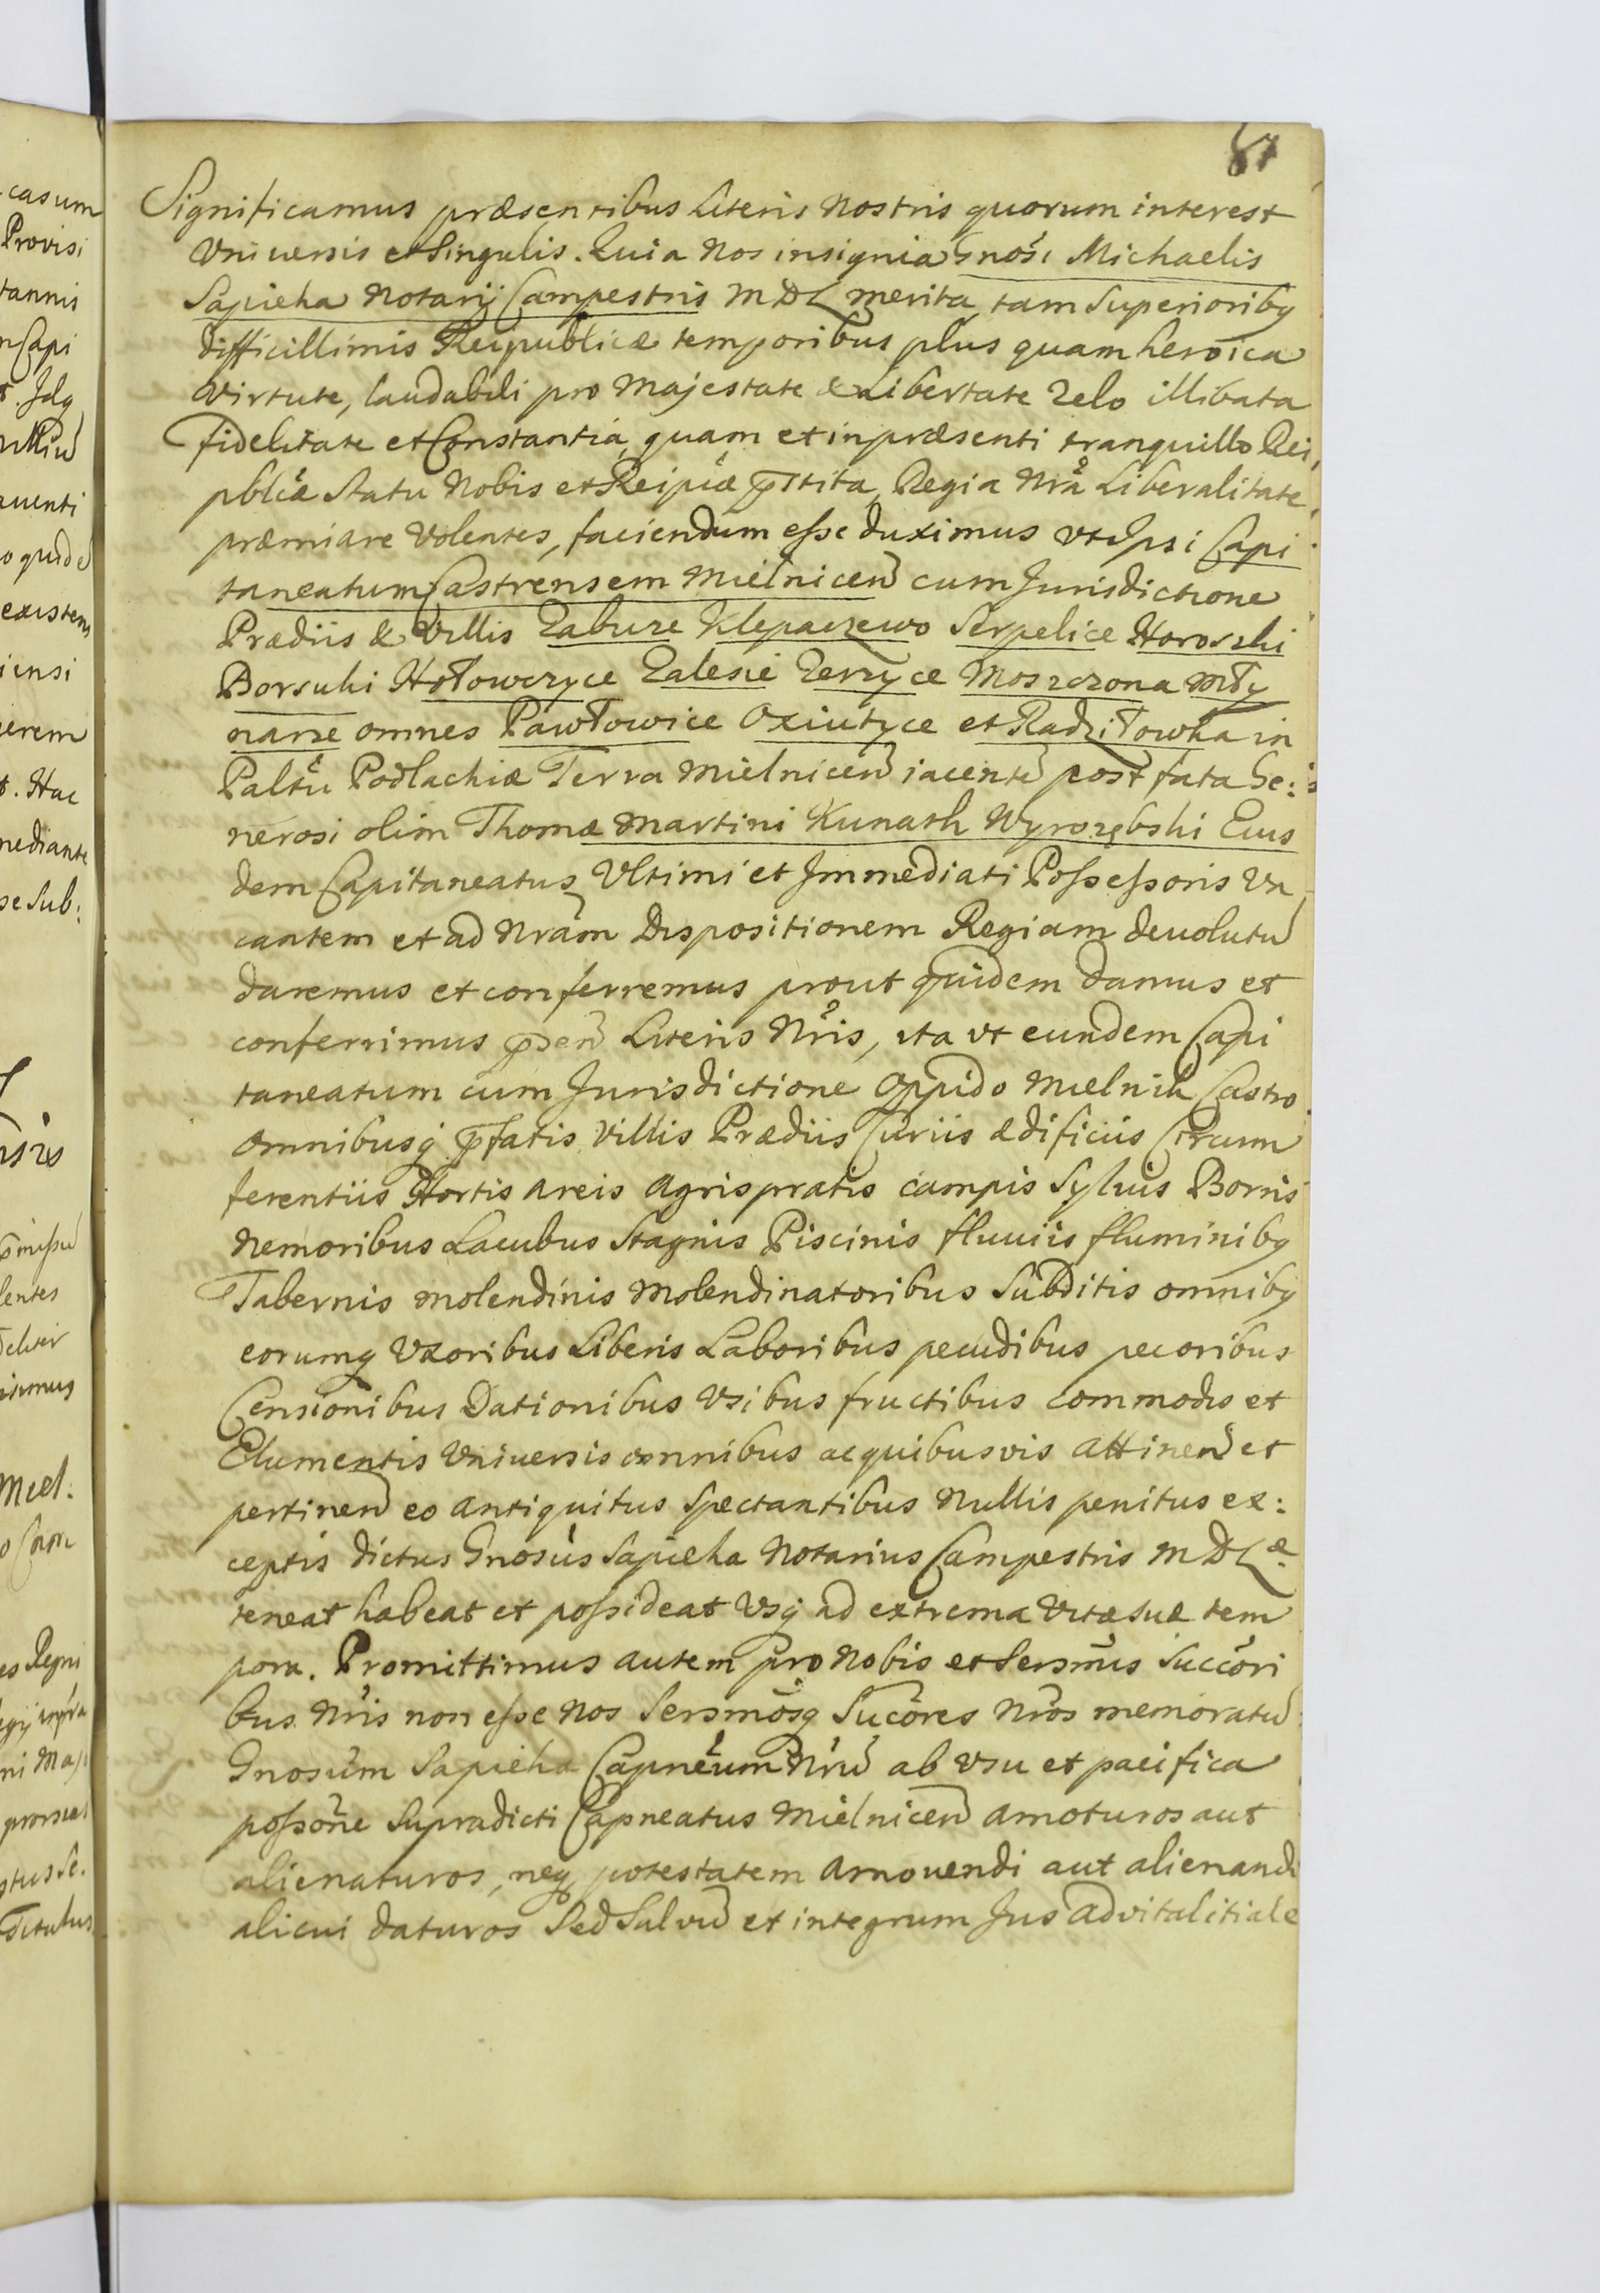 87
Significamus præsentibus Literis Nostris quorum interest
Vniuersis et Singulis. Quia Nos insignia Gnosi Michaelis
Sapieha Notarij Campestris MDL merita, tam Superioribꝫ
difficillimis Reipublicæ temporibus plus quam heroica
Virtute, laudabili pro Majestate & Libertate Zelo illibata
Fidelitate et Constantia, quam et in præsenti tranquillo Rei,
pblcæ Statu Nobis et Reipcæ p̄stita, Regia Nrã Liberalitate,
præmiare Volentes, faciendum esse duximus vt Ipsi Capi
taneatum Castrensem Mielnicen̄ cum Jurisdictione
Prædiis & Villis Zabuze Klepaczewo Serpelice Horoszki
Borsuki Hołowczyce Zalesie Zerzyce Moszczona Mły
narze omnes Pawłowice Oxiutyce et Radziłowka in
Paltũ Podlachiæ Terra Mielnicen̄ iacentẽ post fata Ge:
nerosi olim Thomæ Martini Kunath Wyrozębski Eius
dem Capitaneatus Vltimi et Immediati Possessoris Va
cantem et ad Nrãm Dispositionem Regiam deuolutũ
daremus et conferremus prout quidem damus et
conferrimus p̄sen̄ Literis Nrĩs, ita vt eundem Capi
taneatum cum Jurisdictione Oppido Mielnik Castro
Omnibusq̃ p̄fatis Villis Prædiis Curiis ædificiis Circum
ferentiis Hortis areis agris pratis campis Syluis Borris
Nemoribus Lacubus Stagnis Piscinis fluuiis fluminibꝫ
Tabernis molendinis Molendinatoribus Subditis omnibꝫ
eorumq̃ Vxoribus Liberis Laboribus pecudibus pecoribus
Censionibus Dationibus Vsibus fructibus commodis et
Elumentis Vniuersis omnibus ac quibusvis attinen̄ et
pertinen̄ eo antiquitus spectantibus Nullis penitus ex:
ceptis dictus Gnosus Sapieha Notarius Campestris MDLæ.
teneat habeat et possideat Vsq̃ ad extrema Vitæ suæ tem
pora. Promittimus autem pro Nobis et Sersmĩs Succõri
bus Nrĩs non esse Nos Sersmosq̃ Sucõres Nrõs memoratũ
Gnosum Sapieha Capneũm Nrũ ab Vsu et pacifica
possõne Supradicti Capneatus Mielnicen̄ amoturos aut
alienaturos, neq̃ potestatem Amouendi aut alienandi
alicui daturos Sed Saluũ et integrum Jus advitalitiale